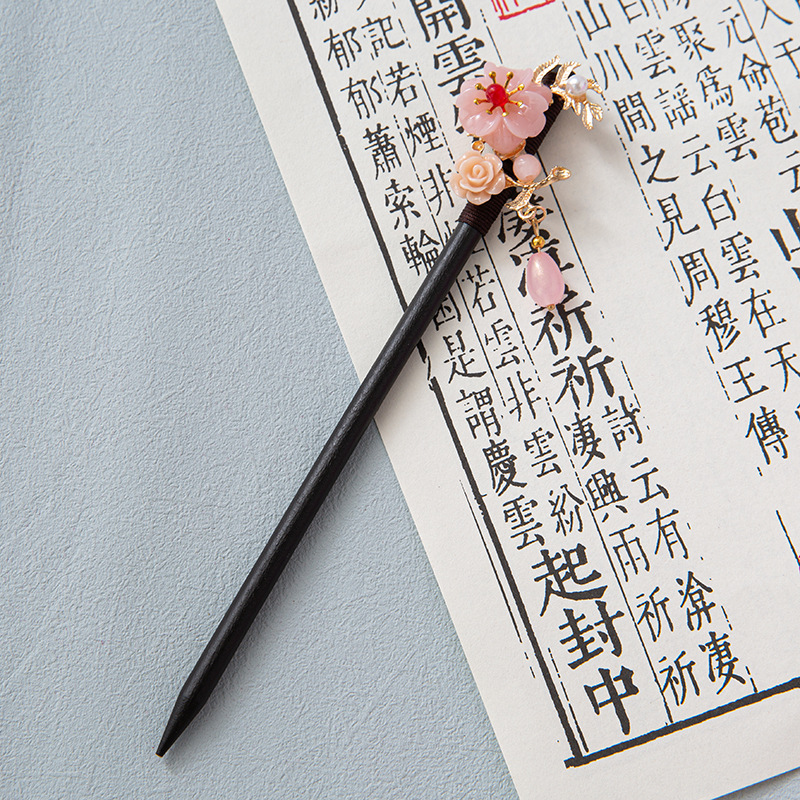 入于
元命苞云
聚爲雲
白雲謠云白雲在天
山川間之見周穆王傳
開雲
祈祈
詩云有渰淒
淒興雨祈祈
記若煙非
若雲非雲紛
郁郁蕭索輪囷是謂慶雲
起封中